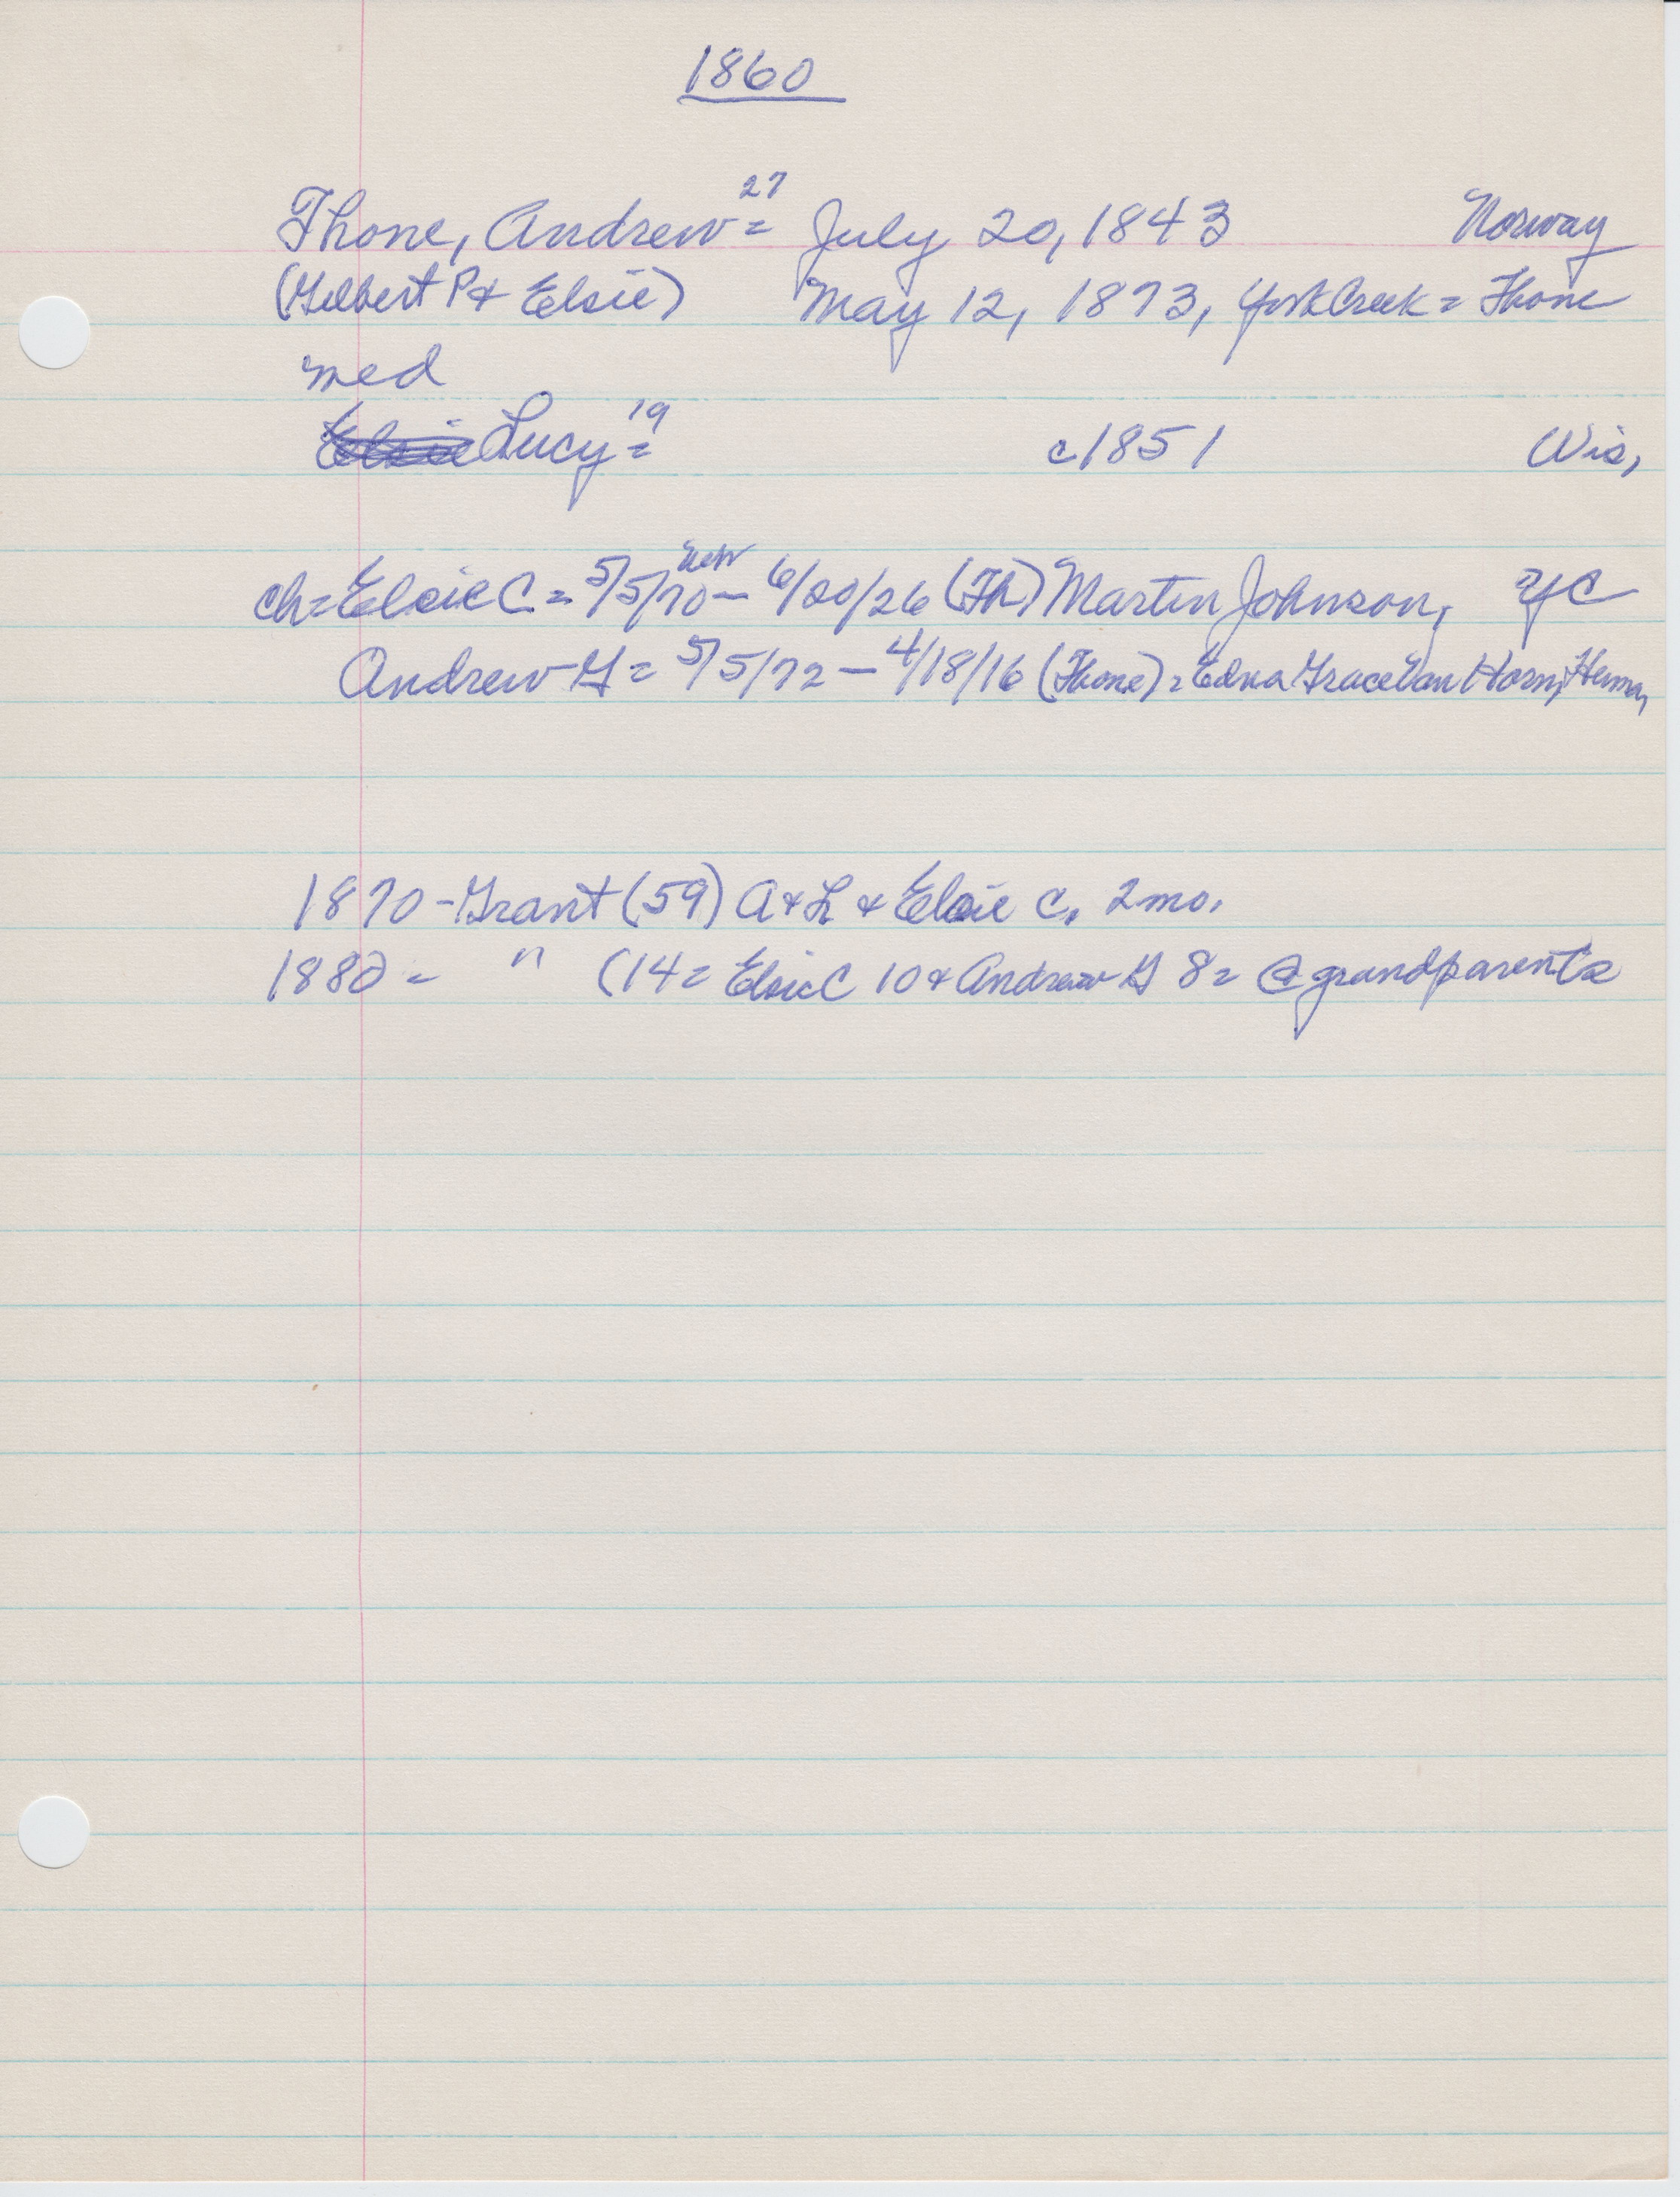 1860
Thone, Andrew 27 = July 20, 1843 Norway
(Gilbert P & Elsie) May 12, 1873, York Creek = Thone
med
Lucy 19 = c1851 Wis,
ch = Elsie C = 5/5/70 - 6/20/26 (Th) Martin Johnson, YC
Andrew G = 5/5/72 - 4/18/16 (Thone) = Edna Grace Van Horn, Herman,
1870 - Grant (59) A & L & Elsie C, 2 mo.
1880 = " (14 = Elsie C 10 & Andrew G 8 = @ grandparents